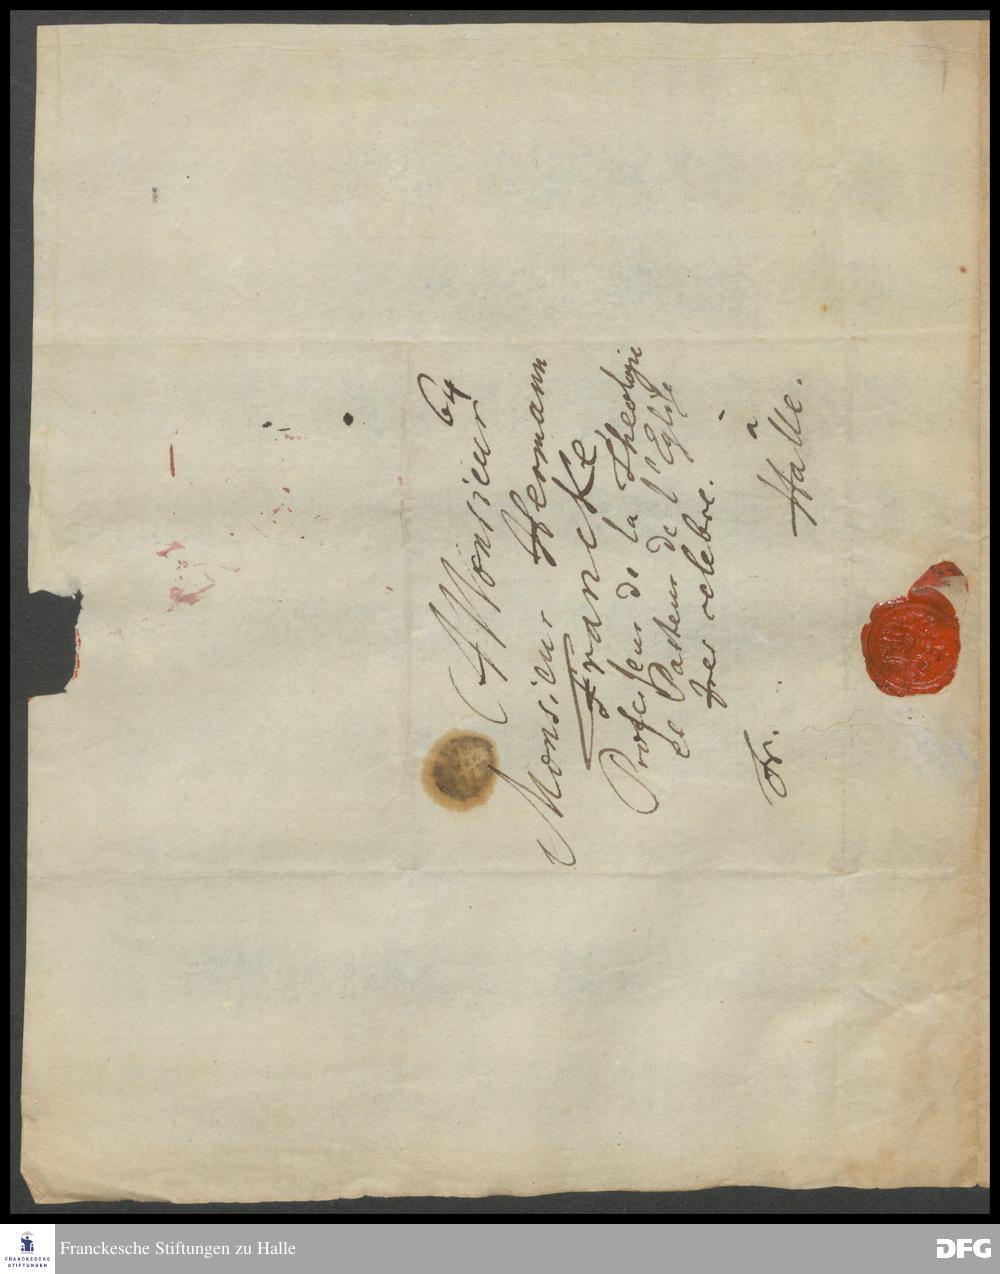 64
A Monsieur
Monsieur Hermann
Francke,
Professeur de la Theologie
et Pasteur de l'Eglise
tres celebre.
à
Fr. Halle.
FRANCKESCHE
STIFTUNGEN
Franckesche Stiftungen zu Halle
DFG